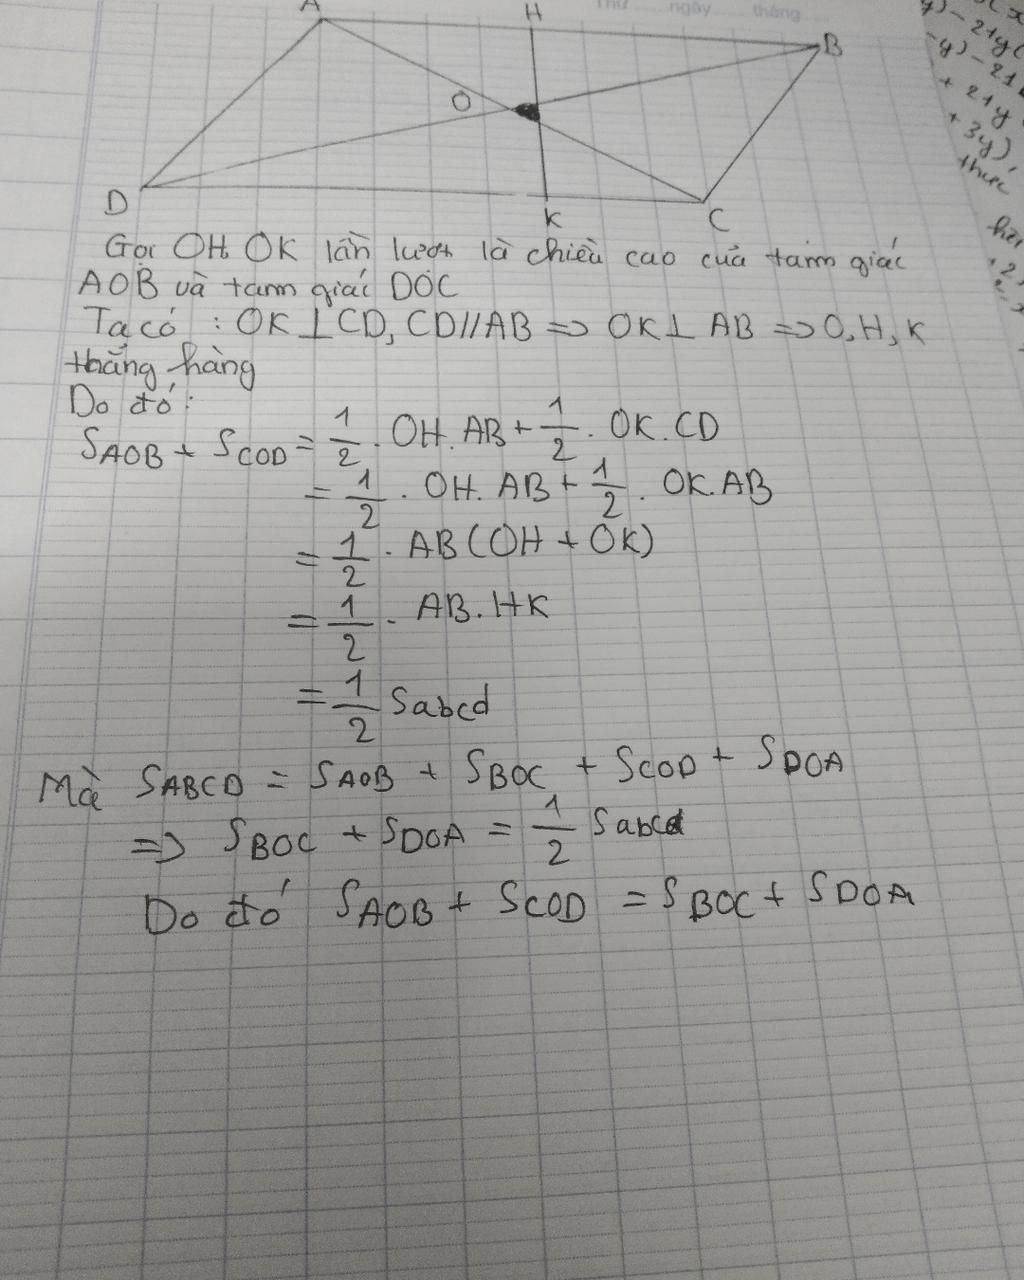 Thứ ngày tháng
A H B
O
D K C
Gọi OH, OK lần lượt là chiều cao của tam giác
AOB và tam giác DOC
Ta có : OK ⊥ CD, CD // AB => OK ⊥ AB => O, H, K
thẳng hàng
Do đó :
S_AOB + S_COD = 1/2 . OH. AB + 1/2 . OK. CD
= 1/2 . OH. AB + 1/2 . OK. AB
= 1/2 . AB (OH + OK)
= 1/2 . AB. HK
= 1/2 Sabcd
Mà S_ABCD = S_AOB + S_BOC + S_COD + S_DOA
=> S_BOC + S_DOA = 1/2 Sabcd
Do đó S_AOB + S_COD = S_BOC + S_DOA
y) - 21y(
-y) - 21
+ 21y
+ 3y)
thức